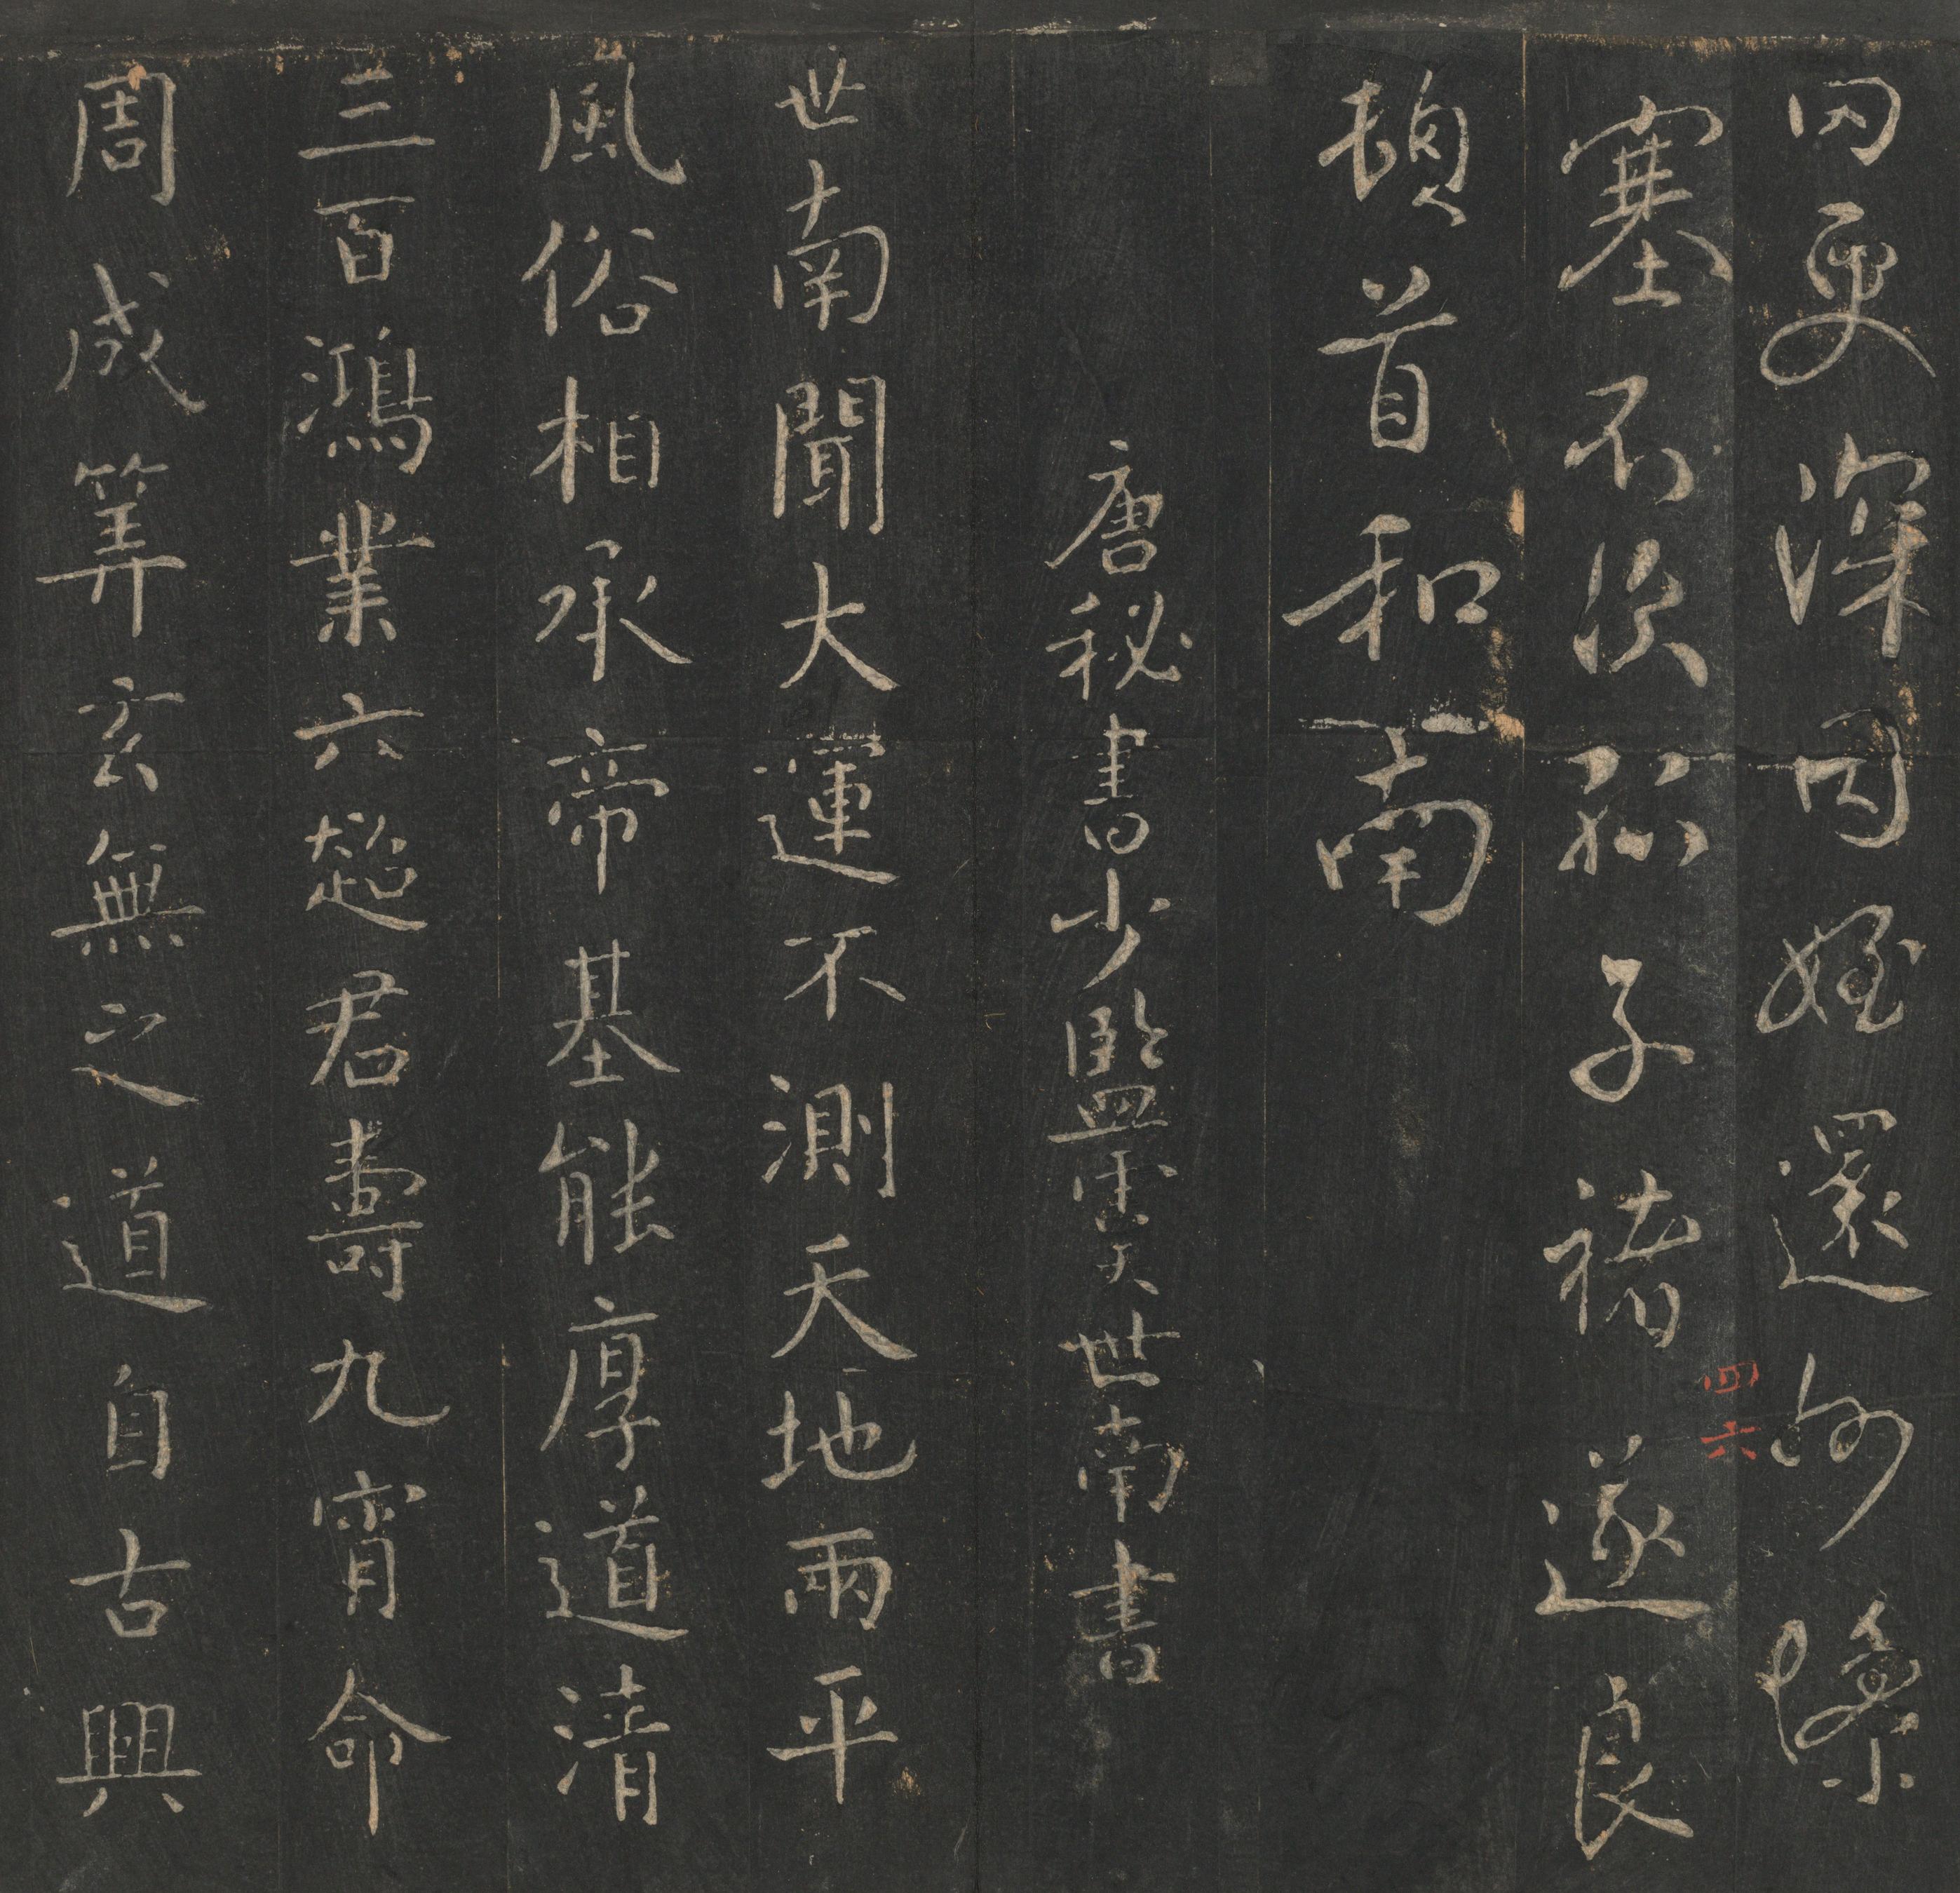 罔更深因姪還州慘
塞不次孤子褚遂良
頓首和南
四六
唐秘書少監虞世南書
世南聞大運不測天地兩平
風俗相承帝基能厚道清
三百鴻業六超君壽九霄命
周成筭玄無之道自古興